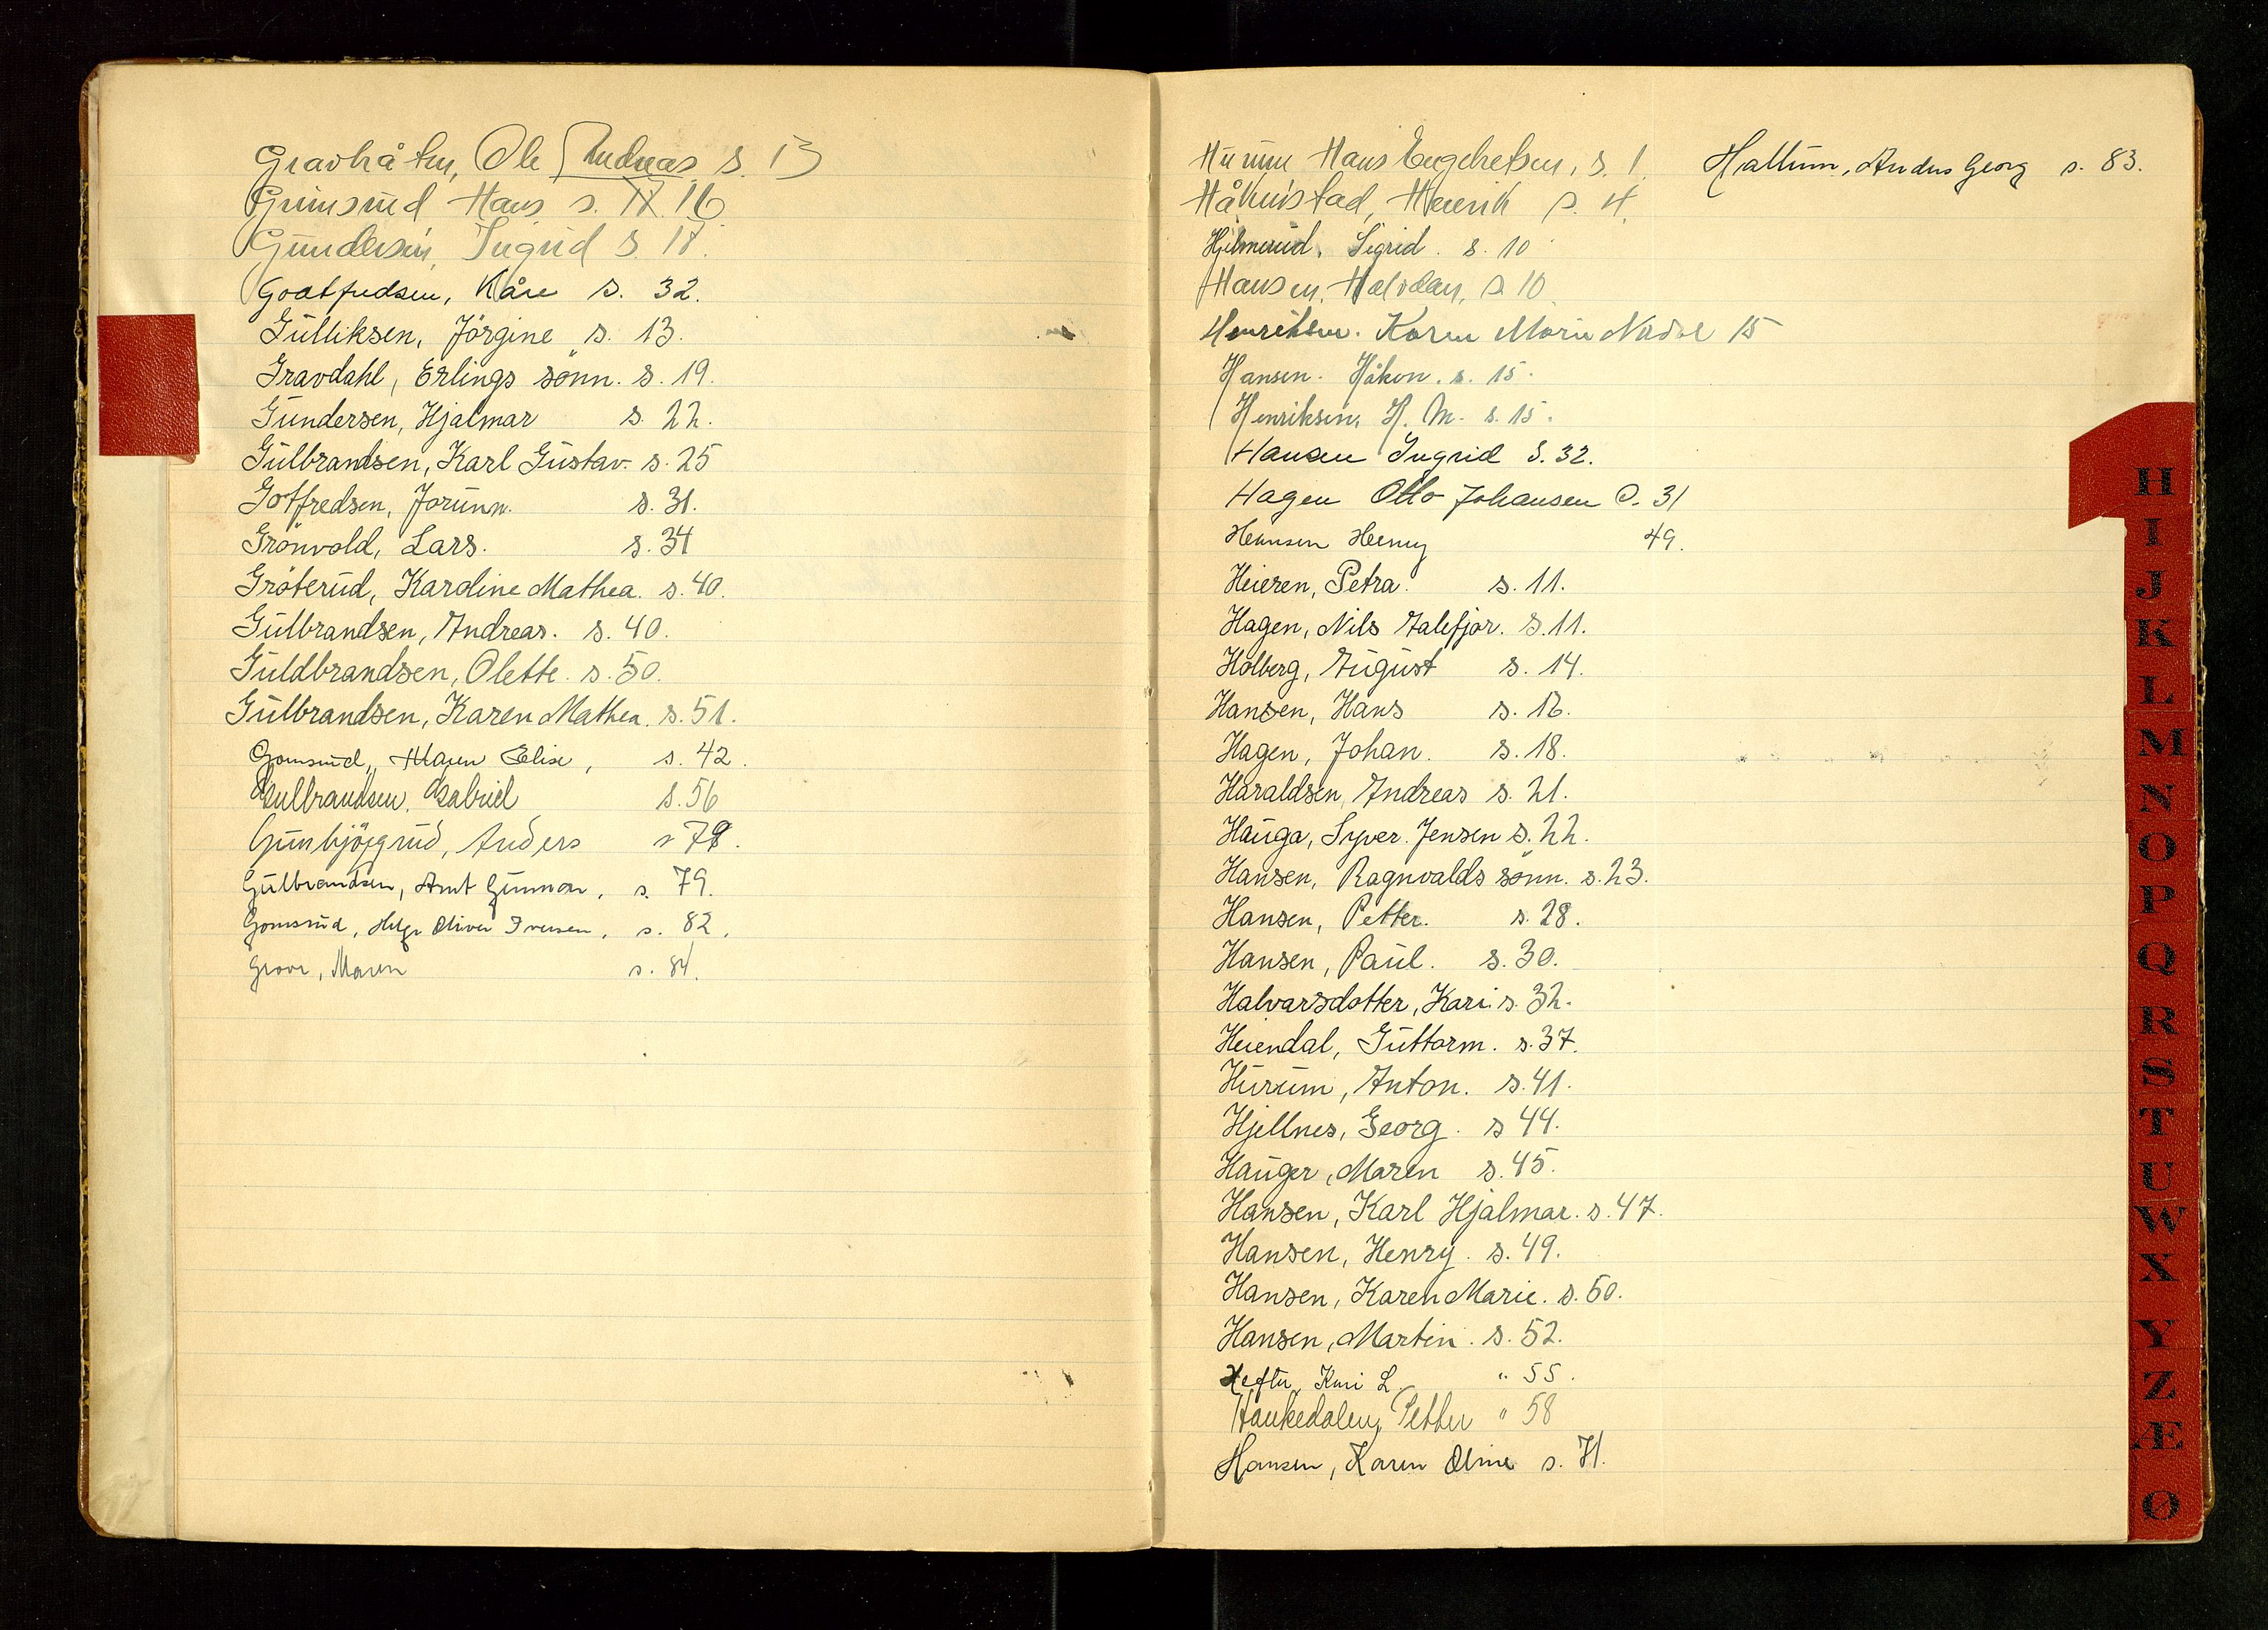 Gravbråten, Ole Andreas s. 13
Grimsrud Hans s. 16
Gundersen, Ingrid s. 18.
Gottfredsen, Kåre s. 32.
Gulliksen, Jörgine s. 13.
Gravdahl, Erlings sönn. s. 19.
Gundersen, Hjalmar s. 22.
Gulbrandsen, Karl Gustav. s. 25
Gotfredsen, Jorunn. s. 31.
Grönvold, Lars. s. 34
Gröterud, Karoline Mathea. s. 40.
Gulbrandsen, Andreas. s. 40.
Guldbrandsen, Olette. s. 50.
Gulbrandsen, Karen Mathea. s. 51.
Gomsrud, Maren Elise, s. 42.
Gulbrandsen. Gabriel s. 56
Gunbjörgrud, Anders s 78.
Gulbrandsen, Arnt Gunnar, s. 79.
Gomsrud, Helge Oliver Iversen, s. 82.
Grove, Maren s. 84.
Hurum Hans Engebretsen, s. 1. Hallum, Anders Georg s. 83.
Håkenstad, Henrik s. 4.
Hjelmerud. Sigrid. s. 10
Hansen, Halvdan, s. 10
Henriksen. Karen Marie 15
Hansen. Håkon. s. 15.
Henriksen, H. M. s. 15.
Hansen Ingrid S. 32.
Hagen Otto Johansen S. 31
Hansen Henry 49.
Heieren, Petra. s. 11.
Hagen, Nils s. 11.
Holberg, August s. 14.
Hansen, Hans s. 16.
Hagen, Johan. s. 18.
Haraldsen, Andreas s. 21.
Hauga, Syver. Jensen s. 22.
Hansen, Ragnvalds sönn. s. 23.
Hansen, Petter. s. 28.
Hansen, Paul. s. 30.
Halvarsdotter, Kari. s. 32.
Heiendal, Guttorm. s. 37.
Hurum, Anton. s. 41.
Hjellnes, Georg. s 44.
Hauger, Maren s. 45.
Hansen, Karl Hjalmar. s. 47.
Hansen, Henry. s. 49.
Hansen, Karen Marie. s. 50.
Hansen, Martin. s. 52.
Heftu, Kari L. " 55.
Haukedalen, Petter " 58
Hansen, Karen Oline s. 71.
H
I
J
K
L
M
N
O
P
Q
R
S
T
U
W
X
Y
Z
Æ
Ø